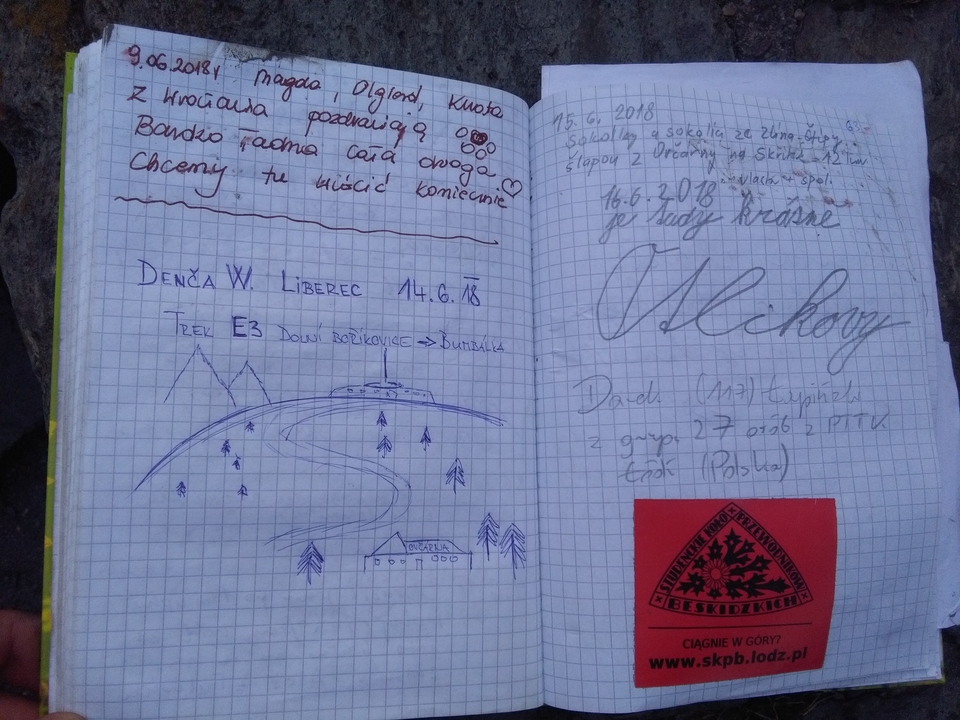 9.06.2018r. Magda, Olgierd,
z Wrocławia pozdrawiają
Bardzo ładna cała droga
Chcemy tu wrócić koniecznie
DENČA W. LIBEREC 14.6.18
TREK E3 DOLNÍ BOŘÍKOVICE → BUMBÁLKA
OVČÁRNA
15.6.2018
Sokolky a sokolíci ze Zlína-Štípy
šlapou z Ovčárny na 12 km
Vlach + spol.
16.6.2018
je tady krásně
Vlčkovy
(117)
z grupą 27 osób z PTTK
(Polska)
STUDENCKIE KOŁO PRZEWODNIKÓW
BESKIDZKICH
CIĄGNIE W GÓRY?
www.skpb.lodz.pl